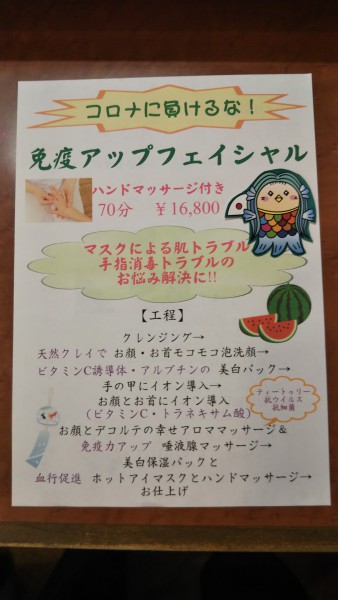 コロナに負けるな！
免疫アップフェイシャル
ハンドマッサージ付き
70分　￥16,800
マスクによる肌トラブル
手指消毒トラブルの
お悩み解決に!!
【工程】
クレンジング→
天然クレイで お顔・お首モコモコ泡洗顔→
ビタミンC誘導体・アルブチンの 美白パック→
手の甲にイオン導入→
お顔とお首にイオン導入
（ビタミンC・トラネキサム酸）
ティートゥリー
抗ウイルス
抗細菌
お顔とデコルテの幸せアロママッサージ＆
免疫力アップ 唾液腺マッサージ→
美白保湿パックと
血行促進 ホットアイマスクとハンドマッサージ→
お仕上げ